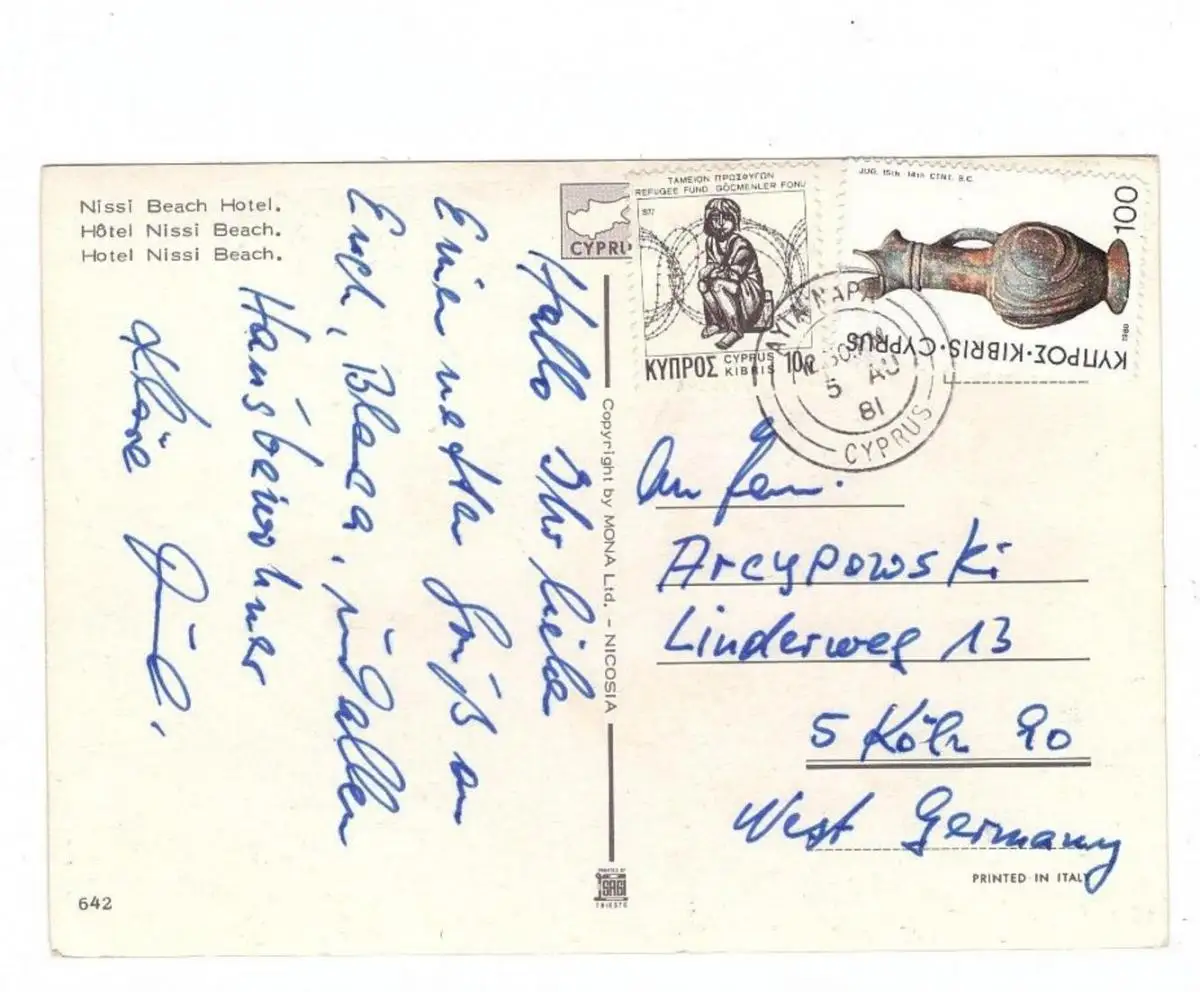 Nissi Beach Hotel.
Hôtel Nissi Beach.
Hotel Nissi Beach.
Hallo Ihr
Einen netten Gruß an
Euch, und allen
Hausbewohner
642
Copyright by MONA Ltd. – NICOSIA
PRINTED BY
SAGI
TRIESTE
CYPRU
ΤΑΜΕΙΟΝ ΠΡΟΣΦΥΓΩΝ
REFUGEE FUND GÖCMENLER FONU
1977
ΚΥΠΡΟΣ CYPRUS KIBRIS 10
JUG. 15th. 14th CENT. B.C.
100
1980
ΚΥΠΡΟΣ·KIBRIS·CYPRUS
5 AU
81
CYPRUS
An Fam.
Arcypowski
Linderweg 13
5 Köln 90
West Germany
PRINTED IN ITALY